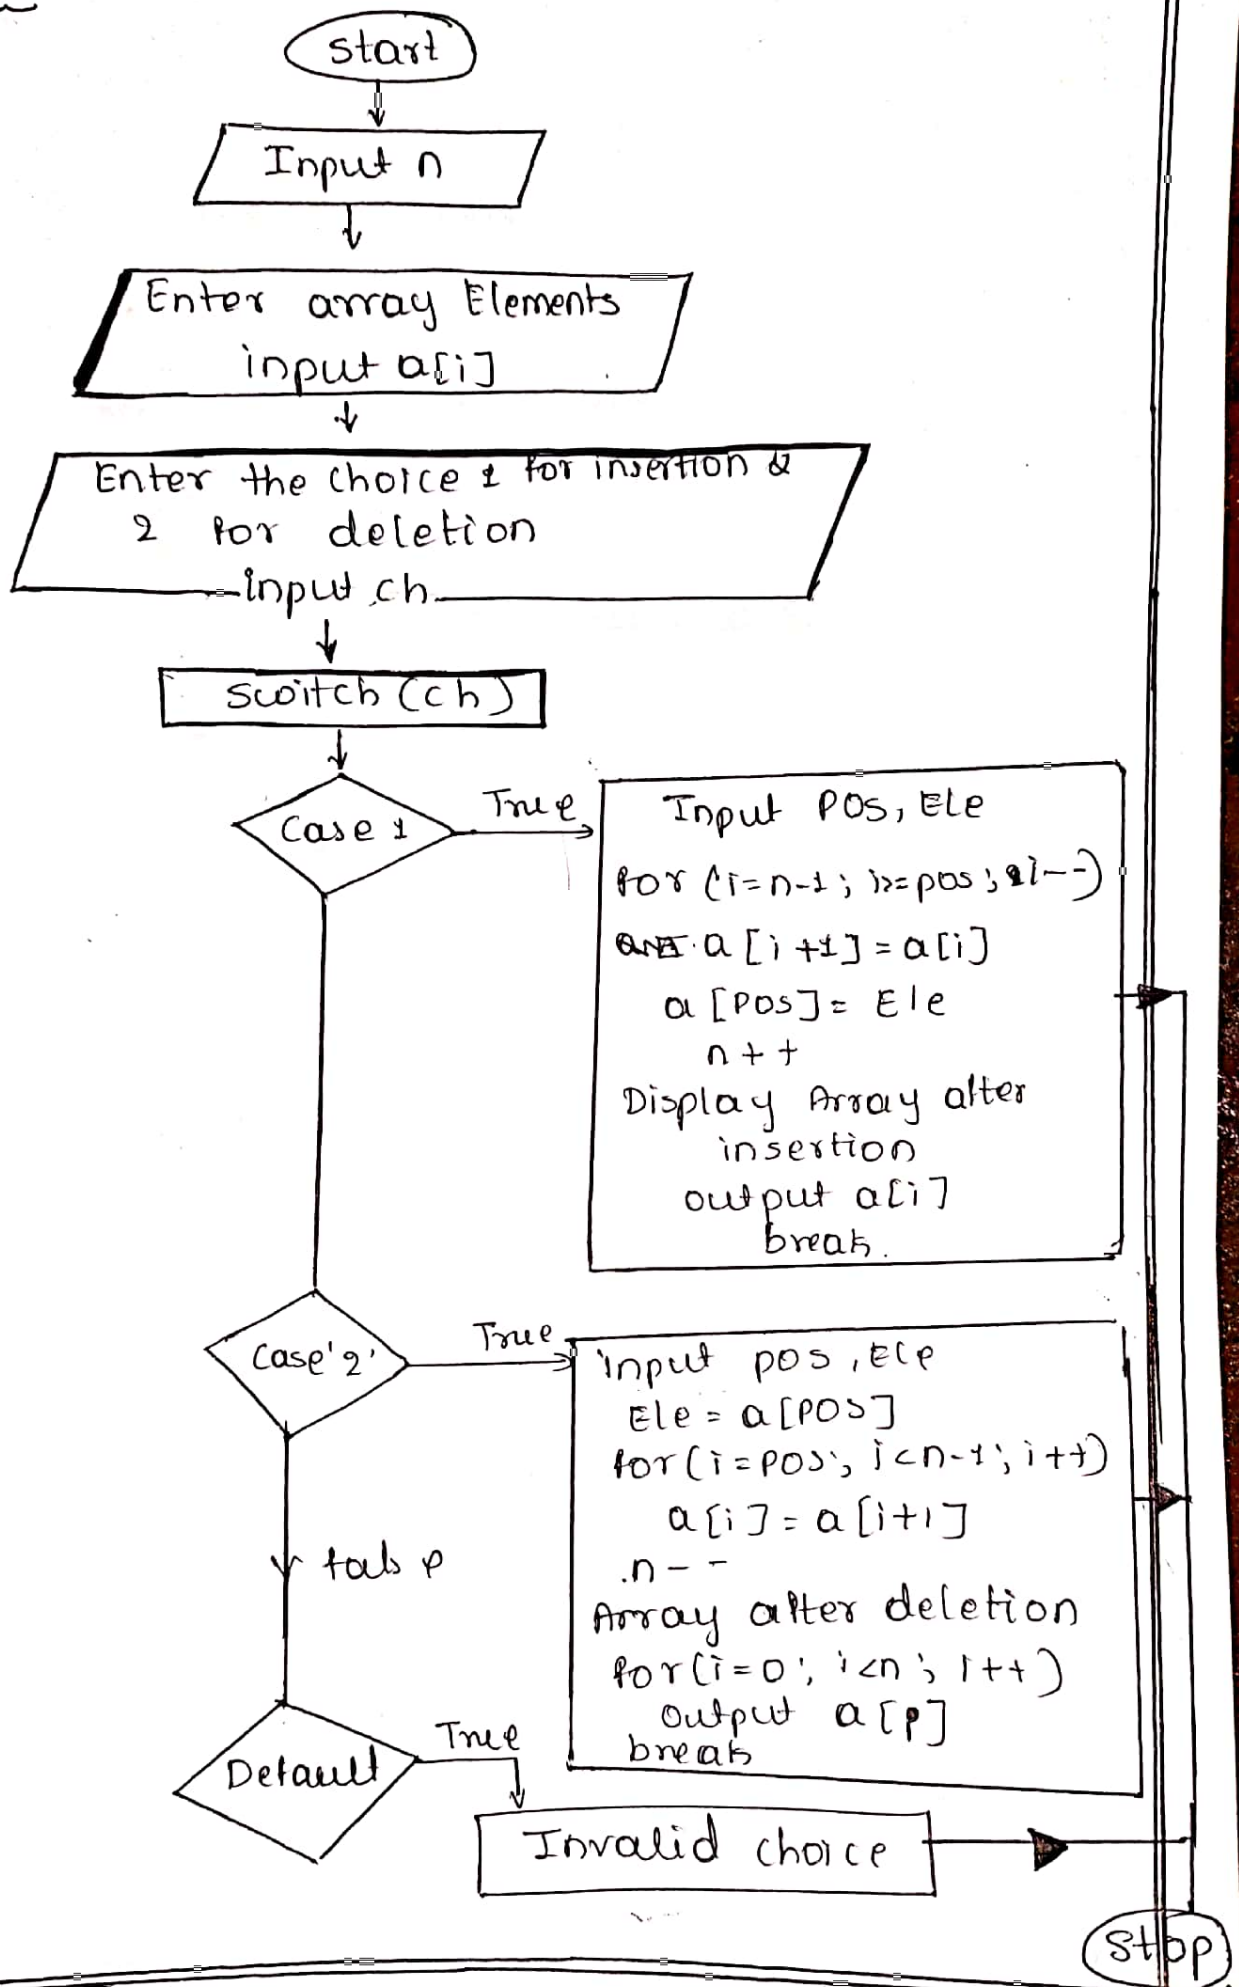 Start
Input n
Enter array Elements
input a[i]
Enter the choice 1 for insertion &
2 for deletion
input ch
switch (ch)
Case 1
True
Input POS, Ele
for (i=n-1; i>=pos; i--)
a[i+1] = a[i]
a[POS] = Ele
n++
Display Array after
insertion
output a[i]
break.
Case '2'
True
input pos, Ele
Ele = a[POS]
for(i=pos; i<n-1; i++)
a[i] = a[i+1]
n--
Array after deletion
for(i=0; i<n; i++)
output a[p]
break
false
Default
True
Invalid choice
Stop